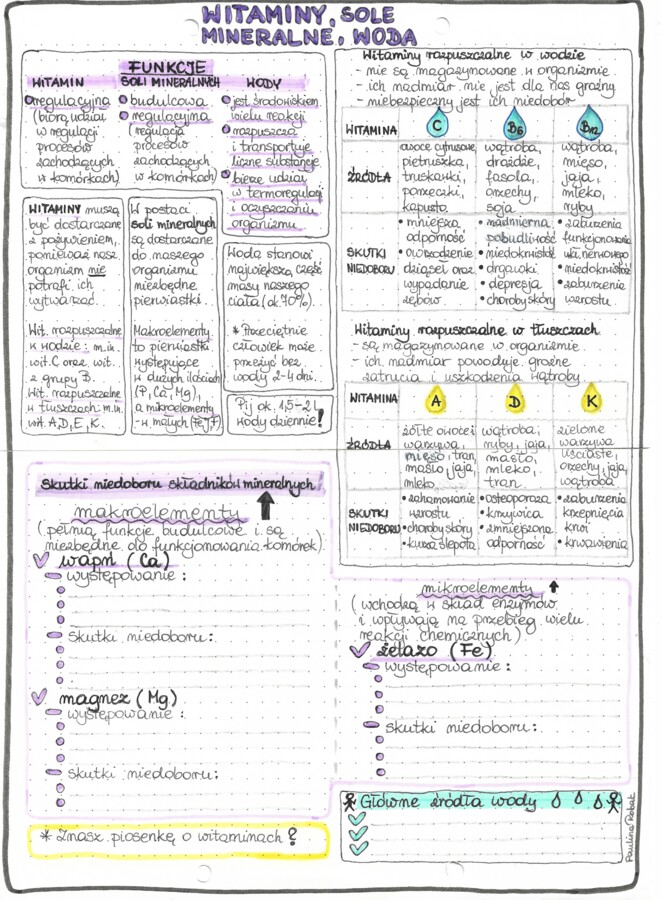 WITAMINY, SOLE
MINERALNE, WODA
FUNKCJE
WITAMIN
regulacyjna
(biorą udział
w regulacji
procesów
zachodzących
w komórkach)
SOLI MINERALNYCH
budulcowa
regulacyjna
(regulacja
procesów
zachodzących
w komórkach)
WODY
jest środowiskiem
wielu reakcji
rozpuszcza
i transportuje
liczne substancje
bierze udział
w termoregulacji
i oczyszczaniu
organizmu
WITAMINY muszą
być dostarczane
z pożywieniem,
ponieważ nasz
organizm nie
potrafi ich
wytwarzać.
Wit. rozpuszczalne
w wodzie: m.in.
wit. C oraz wit.
z grupy B.
Wit. rozpuszczalne
w tłuszczach: m.in.
wit. A, D, E, K.
W postaci
soli mineralnych
są dostarczane
do naszego
organizmu
niezbędne
pierwiastki.
Makroelementy
to pierwiastki
występujące
w dużych ilościach
(P, Ca, Mg),
a mikroelementy
- w małych (Fe, I)
Woda stanowi
największą część
masy naszego
ciała (ok. 70%).
* Przeciętnie
człowiek może
przeżyć bez
wody 2-4 dni.
Pij ok. 1,5-2 l
wody dziennie!
Witaminy rozpuszczalne w wodzie
- nie są magazynowane w organizmie
- ich nadmiar nie jest dla nas groźny
- niebezpieczny jest ich niedobór
WITAMINA C B6 B12
ŹRÓDŁA
owoce cytrusowe,
pietruszka,
truskawki,
porzeczki,
kapusta
wątroba,
drożdże,
fasola,
orzechy,
soja
wątroba,
mięso,
jaja,
mleko,
ryby
SKUTKI
NIEDOBORU
• mniejsza
odporność
• owrzodzenie
dziąseł oraz
wypadanie
zębów
• nadmierna
pobudliwość
• niedokrwistość
• drgawki
• depresja
• choroby skóry
• zaburzenia
funkcjonowania
ukł. nerwowego
• niedokrwistość
• zaburzenie
wzrostu
Witaminy rozpuszczalne w tłuszczach
- są magazynowane w organizmie
- ich nadmiar powoduje groźne
zatrucia i uszkodzenia wątroby
WITAMINA A D K
ŹRÓDŁA
żółte owoce i
warzywa,
mięso, tran,
masło, jaja,
mleko
wątroba,
ryby, jaja,
masło,
mleko,
tran
zielone
warzywa
liściaste,
orzechy, jaja,
wątroba
SKUTKI
NIEDOBORU
• zahamowanie
wzrostu
• choroby skóry
• kurza ślepota
• osteoporoza
• krzywica
• zmniejszona
odporność
• zaburzenia
krzepnięcia
krwi
• krwawienia
Skutki niedoboru składników mineralnych
makroelementy
(pełnią funkcje budulcowe i są
niezbędne do funkcjonowania komórek)
wapń (Ca)
występowanie:
skutki niedoboru:
magnez (Mg)
występowanie:
skutki niedoboru:
mikroelementy
(wchodzą w skład enzymów
i wpływają na przebieg wielu
reakcji chemicznych)
żelazo (Fe)
występowanie:
skutki niedoboru:
Główne źródła wody
* Znasz piosenkę o witaminach?
Paulina Robak